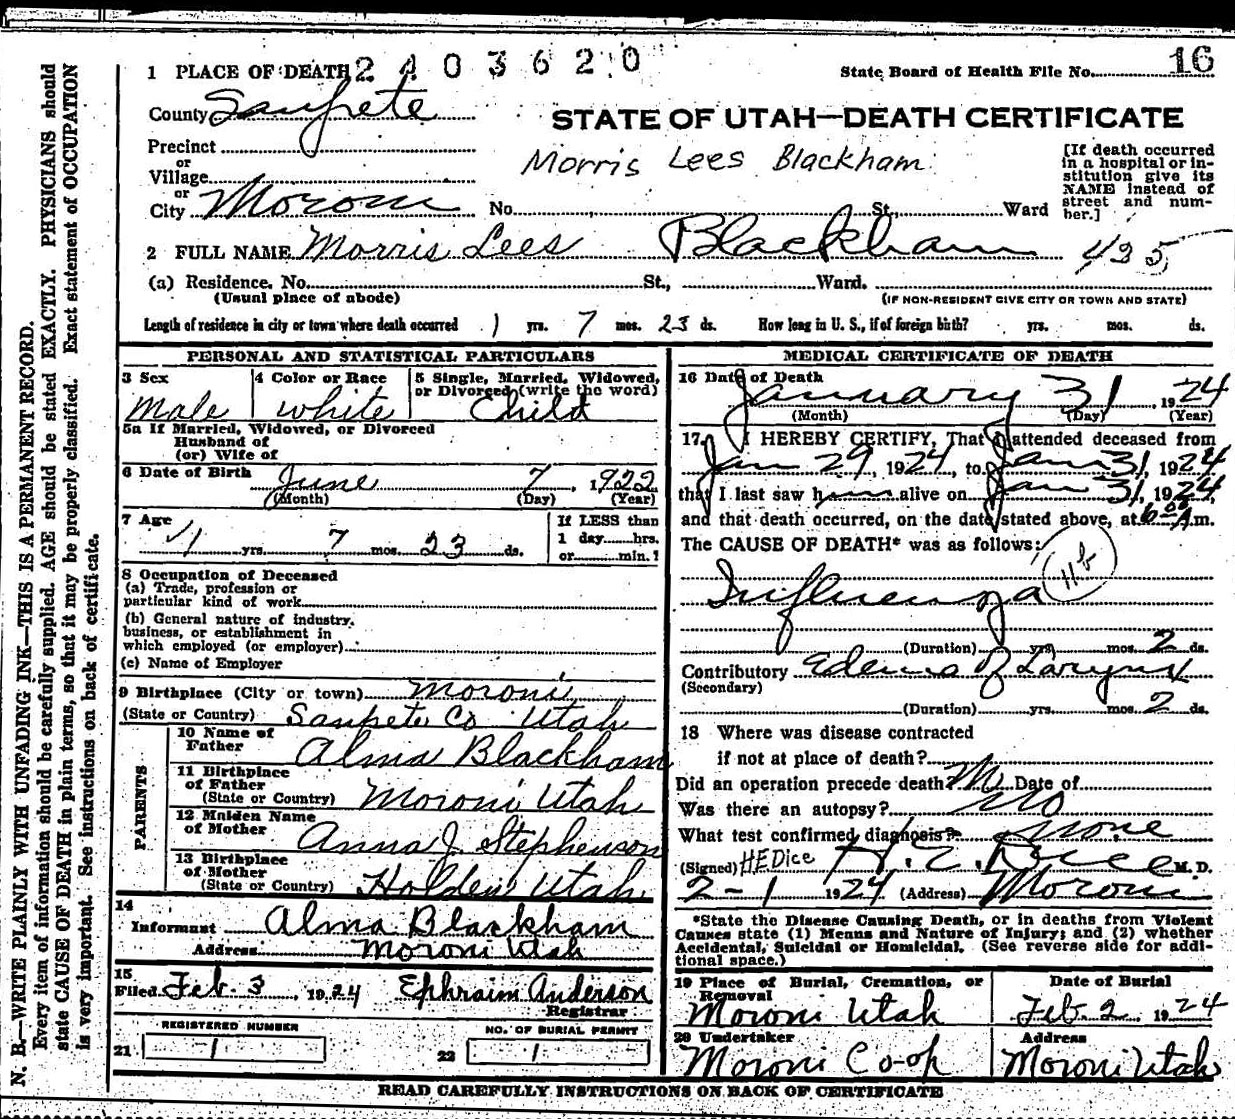 16
1 PLACE OF DEATH 2403620
State Board of Health File No.
County Sanpete
STATE OF UTAH—DEATH CERTIFICATE
Precinct
or
Village
or
City Moroni No. St., Ward
Morris Lees Blackham
[If death occurred
in a hospital or in-
stitution give its
NAME instead of
street and num-
ber.]
2 FULL NAME Morris Lees Blackham 435
(a) Residence. No. St., Ward.
(Usual place of abode) (IF NON-RESIDENT GIVE CITY OR TOWN AND STATE)
Length of residence in city or town where death occurred 1 yrs. 7 mos. 23 ds. How long in U. S., if of foreign birth? yrs. mos. ds.
PERSONAL AND STATISTICAL PARTICULARS
3 Sex
Male
4 Color or Race
white
5 Single, Married, Widowed,
or Divorced (write the word)
Child
5a If Married, Widowed, or Divorced
Husband of
(or) Wife of
6 Date of Birth June 7, 1922
(Month) (Day) (Year)
7 Age
1 yrs. 7 mos. 23 ds.
If LESS than
1 day hrs.
or min.?
8 Occupation of Deceased
(a) Trade, profession or
particular kind of work
(b) General nature of industry,
business, or establishment in
which employed (or employer)
(c) Name of Employer
9 Birthplace (City or town) Moroni
(State or Country) Sanpete Co Utah
PARENTS
10 Name of
Father Alma Blackham
11 Birthplace
of Father
(State or Country) Moroni Utah
12 Maiden Name
of Mother Anna J. Stephenson
13 Birthplace
of Mother
(State or Country) Holden Utah
14
Informant Alma Blackham
Address Moroni Utah
15
Filed Feb. 3, 1924 Ephraim Anderson
Registrar
REGISTERED NUMBER
21 1
NO. OF BURIAL PERMIT
22 1
MEDICAL CERTIFICATE OF DEATH
16 Date of Death
January 31, 1924
(Month) (Day) (Year)
17. I HEREBY CERTIFY, That I attended deceased from
Jan 29, 1924, to Jan 31, 1924
that I last saw him alive on Jan 31, 1924
and that death occurred, on the date stated above, at 6 00 A.m.
The CAUSE OF DEATH* was as follows:
11b
Influenza
(Duration) yrs. mos. 2 ds.
Contributory Edema of Larynx
(Secondary)
(Duration) yrs. mos. 2 ds.
18 Where was disease contracted
if not at place of death?
Did an operation precede death? No Date of
Was there an autopsy? No
What test confirmed diagnosis? None
(Signed) HEDice H. E. Dice M. D.
2-1 1924 (Address) Moroni
*State the Disease Causing Death, or in deaths from Violent
Causes state (1) Means and Nature of Injury; and (2) whether
Accidental, Suicidal or Homicidal. (See reverse side for addi-
tional space.)
19 Place of Burial, Cremation, or
Removal
Moroni Utah
Date of Burial
Feb. 2 1924
20 Undertaker
Moroni Co-op
Address
Moroni Utah
READ CAREFULLY INSTRUCTIONS ON BACK OF CERTIFICATE
N. B.—WRITE PLAINLY WITH UNFADING INK—THIS IS A PERMANENT RECORD.
Every item of information should be carefully supplied. AGE should be stated EXACTLY. PHYSICIANS should
state CAUSE OF DEATH in plain terms, so that it may be properly classified. Exact statement of OCCUPATION
is very important. See instructions on back of certificate.